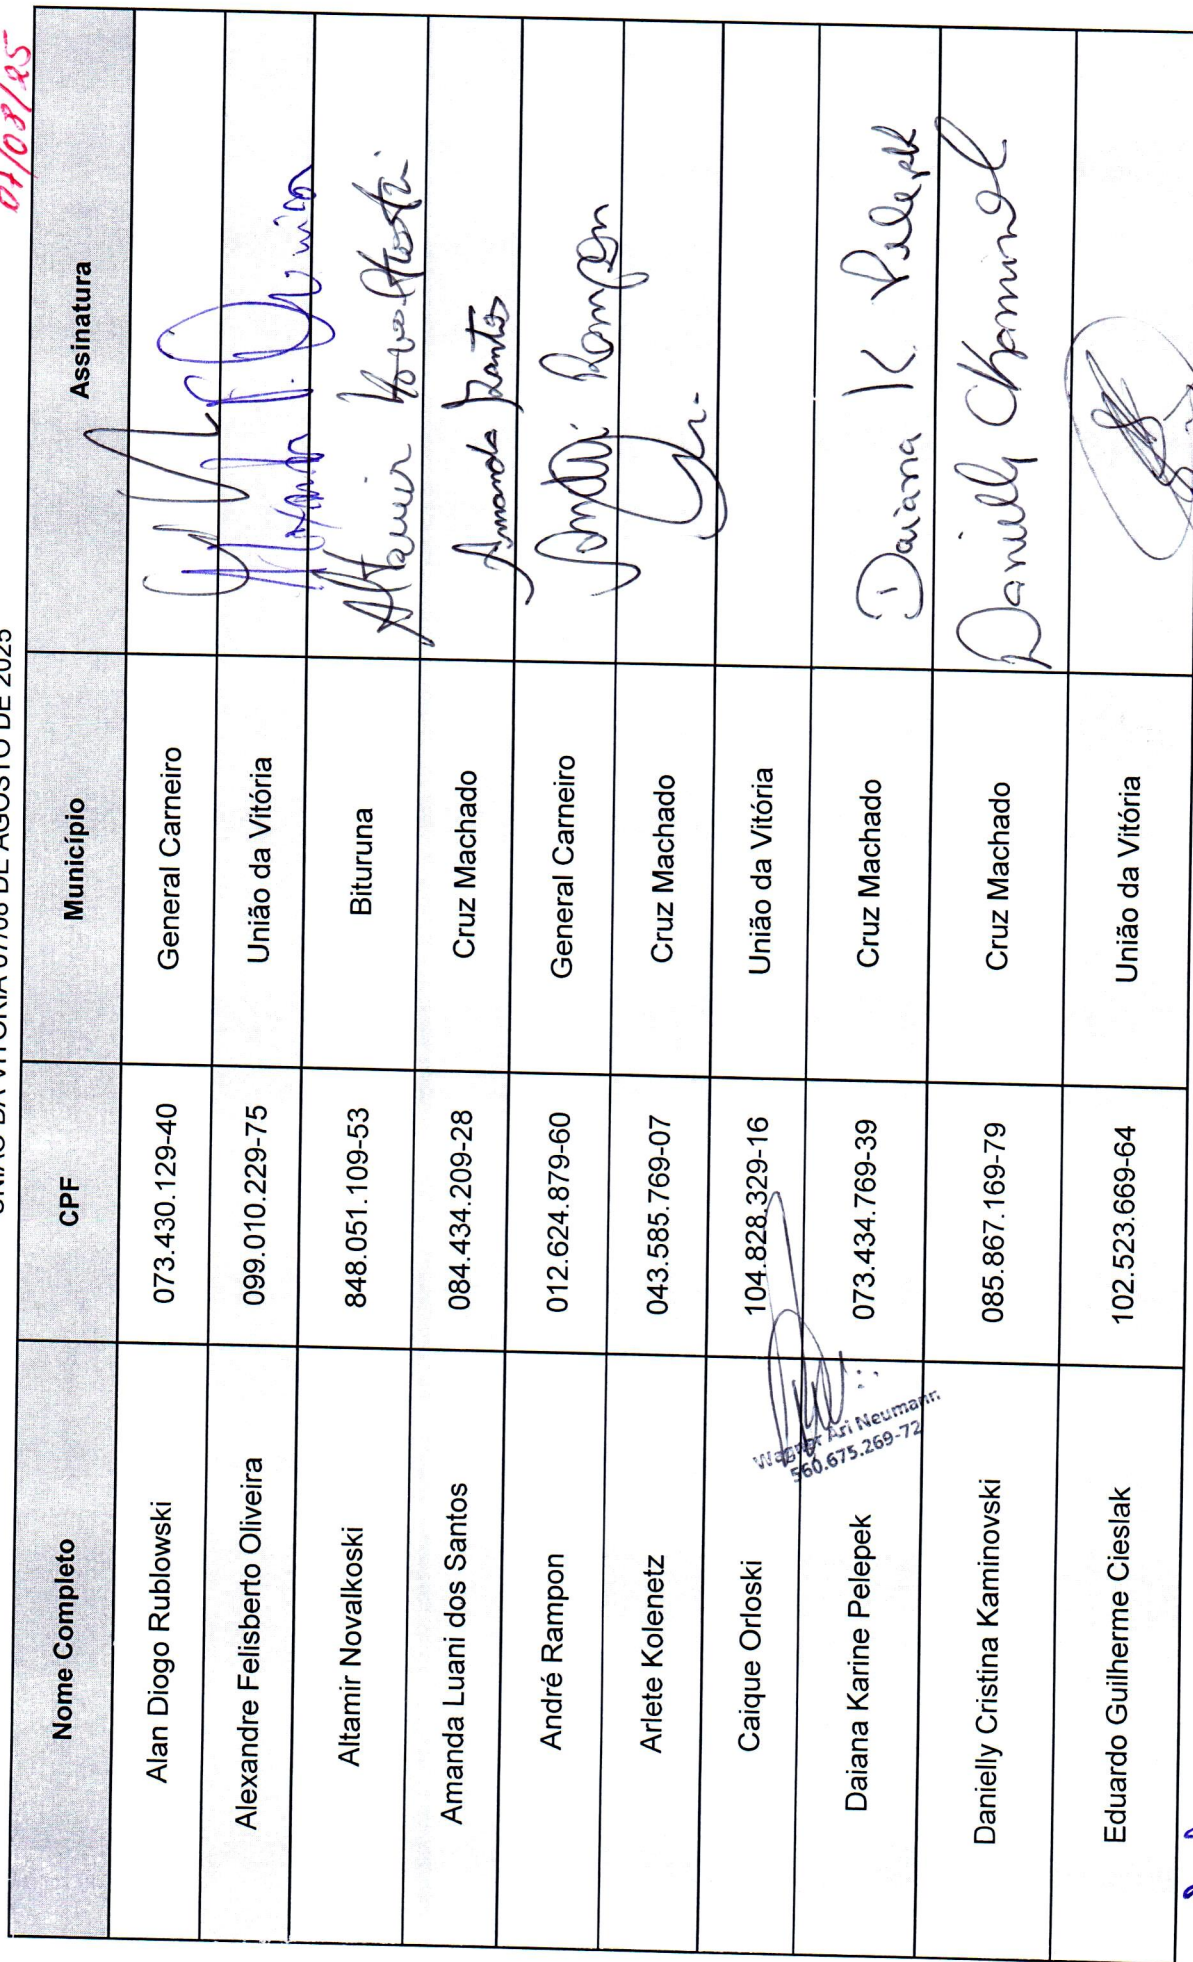 07/08/25
UNIÃO DA VITÓRIA 07/08 DE AGOSTO DE 2025
Nome Completo CPF Município Assinatura
Alan Diogo Rublowski 073.430.129-40 General Carneiro
Alexandre Felisberto Oliveira 099.010.229-75 União da Vitória
Altamir Novalkoski 848.051.109-53 Bituruna Altamir Novalkoski
Amanda Luani dos Santos 084.434.209-28 Cruz Machado Amanda Santos
André Rampon 012.624.879-60 General Carneiro Rampon
Arlete Kolenetz 043.585.769-07 Cruz Machado
Caique Orloski 104.828.329-16 União da Vitória
Wagner Ari Neumann
560.675.269-72
Daiana Karine Pelepek 073.434.769-39 Cruz Machado Daiana K Pelepek
Danielly Cristina Kaminovski 085.867.169-79 Cruz Machado Danielly
Eduardo Guilherme Cieslak 102.523.669-64 União da Vitória